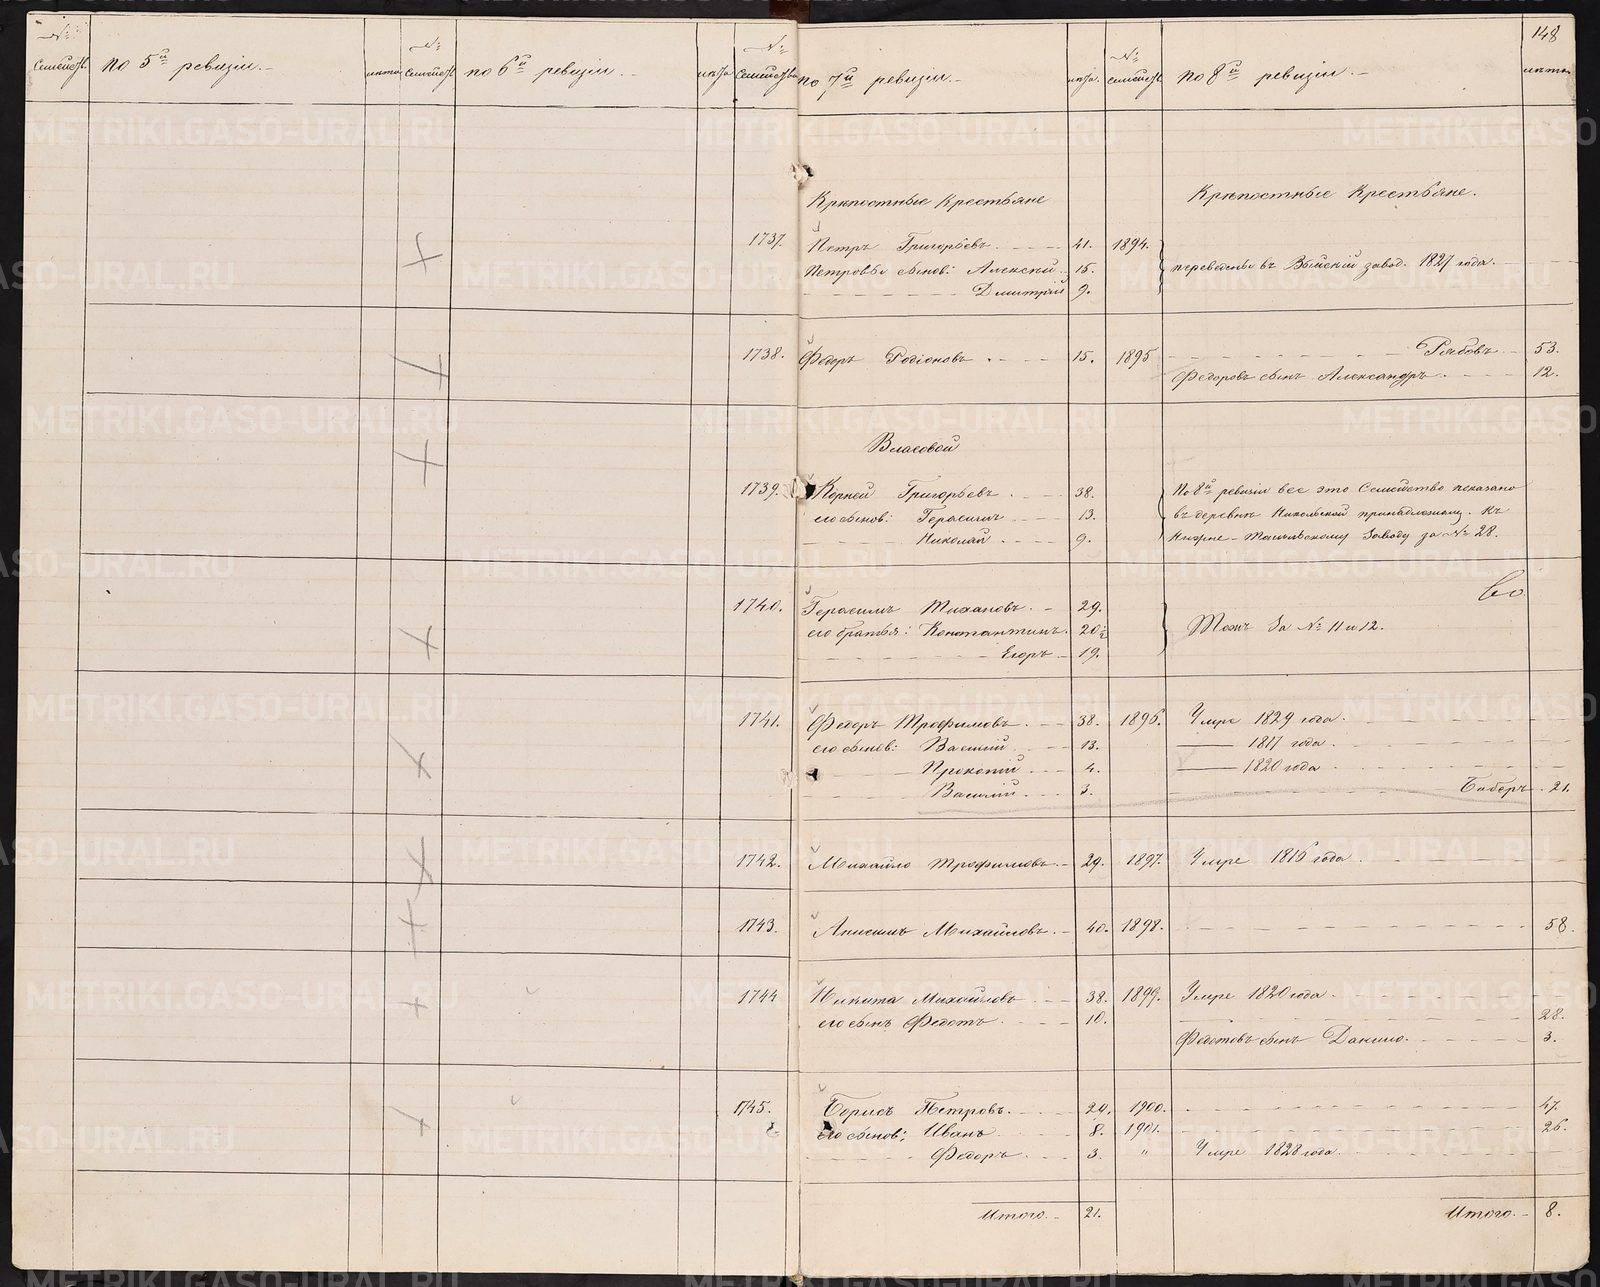 148
№ Семейст. По 5й ревизіи.- лѣта № Семейст. по 6й ревизіи.- лѣта № Семейства по 7й ревизіи.- лѣта. № Семейст. По 8й ревизіи.- лѣта
Крѣпостные Крестьяне Крѣпостные Крестьяне.
1737. Петръ Григорьевъ. 41. 1894.
Петровы сынов: Алексѣй 15. переведены въ Выйскій завод. 1827 года.
Дмитрій 9.
1738. Федоръ Родіоновъ 15. 1895 Рябовъ 53.
Федоровъ сынъ Александръ. 12.
Власовой
1739. Корней Григорьевъ 38. По 8й ревизіи все это Семейство показано
его сынов: Герасимъ 13. въ деревнѣ Никольской принадлежащ. къ
Николай 9. Нижне-Тагильскому Заводу за № 28.
1740. Герасимъ 29.
его братья: Константинъ. 20½ Тожъ За № 11 и 12.
Егоръ 19.
1741. Федоръ Трофимовъ. 38. 1896. Умре 1829 года.
его сынов: Василий 13. 1817 года.
Прокопій 4. 1820 года
Василій 3. 21.
1742. Михайло Трофимовъ. 29. 1897. Умре 1816 года.
1743. Анисимъ Михайловъ. 40. 1898. 58.
1744 Никита Михайловъ 38. 1899. Умре 1820 года.
его сынъ Федотъ. 10. 28.
Федотовъ сынъ Данило. 3.
1745. Борисъ Петровъ. 24. 1900. 47.
его сынов: Иванъ 8. 1901. 26.
Федоръ 3. " Умре 1828 года.
Итого. 21. Итого. 8.
METRIKI.GASO-URAL.RU